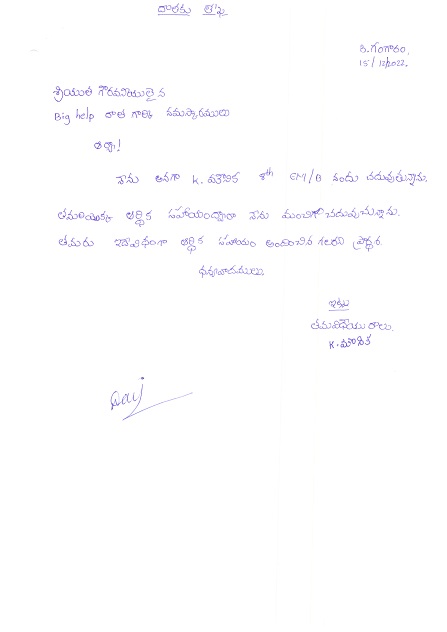 దాతకు లేఖ
బి.గంగారం,
15/12/2022.
శ్రీయుత గౌరవనీయులైన
Big help దాత గారికి నమస్కారములు
ఆర్యా!
నేను అనగా K. మౌనిక 8th EM/B నందు చదువుతున్నాను.
తమరియొక్క ఆర్థిక సహాయంద్వారా నేను మంచిగా చదువుచున్నాను.
తమరు ఇదేవిధంగా ఆర్థిక సహాయం అందించగలరని ప్రార్థన.
ధన్యవాదములు.
ఇట్లు
తమవిధేయురాలు.
K. మౌనిక